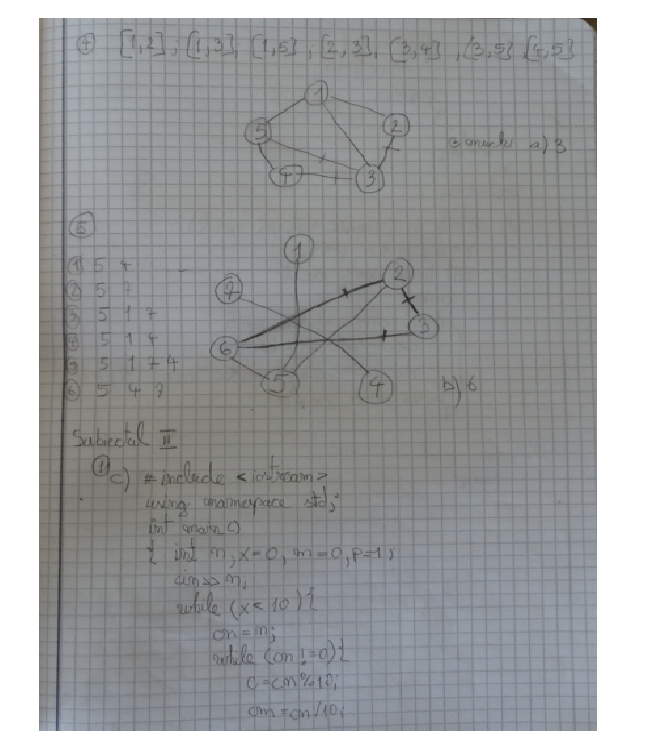 ④ [1,2], [1,3], [1,5], [2,3], [3,4], [3,5] [4,5]
1
5
2
a) 3
4
3
⑤
1
① 5 4
② 5 7
7
2
③ 5 1 7
3
④ 5 1 4
6
⑤ 5 1 7 4
5
4
b) 6
⑥ 5 4 7
Subiectul II
① c) #include <iostream>
using namespace std;
int main()
{ int n, x=0, m=0, p=1;
cin>>n;
while (x< 10){
cn=n;
while (cn!=0){
c=cn%10;
cn=cn/10;